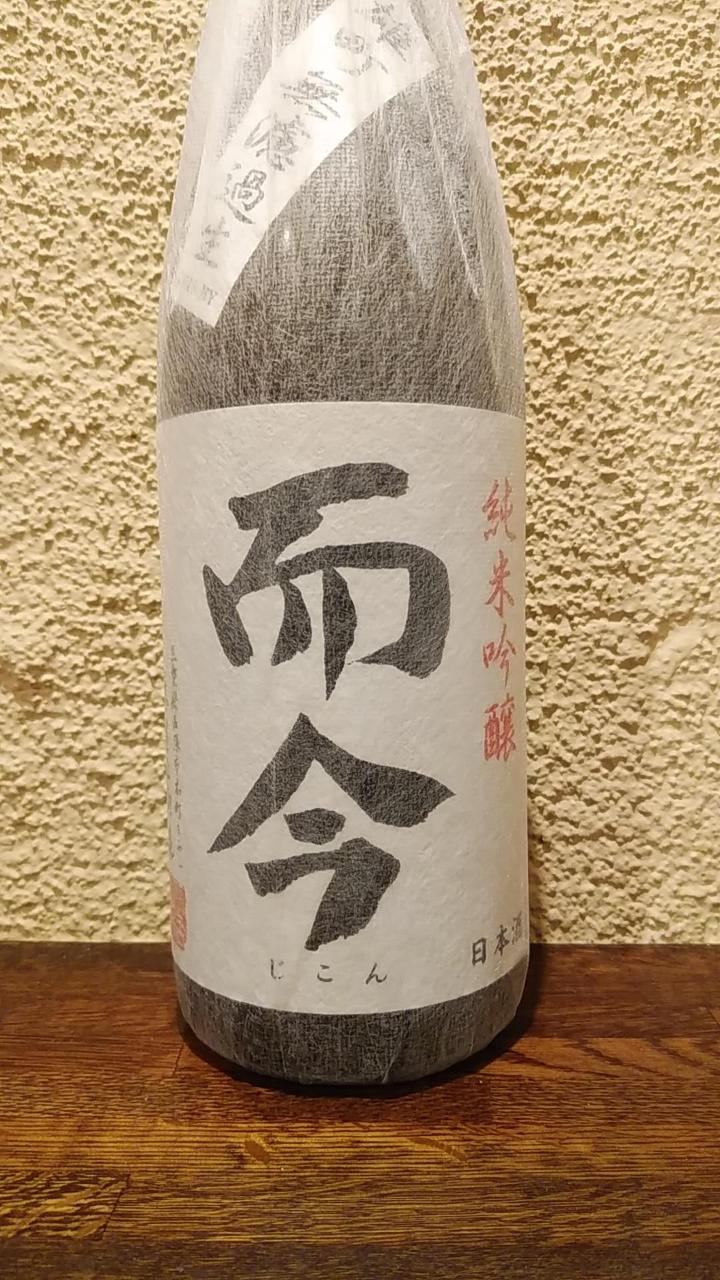 雄町 無濾過生
純米吟醸
而今
じこん
日本酒